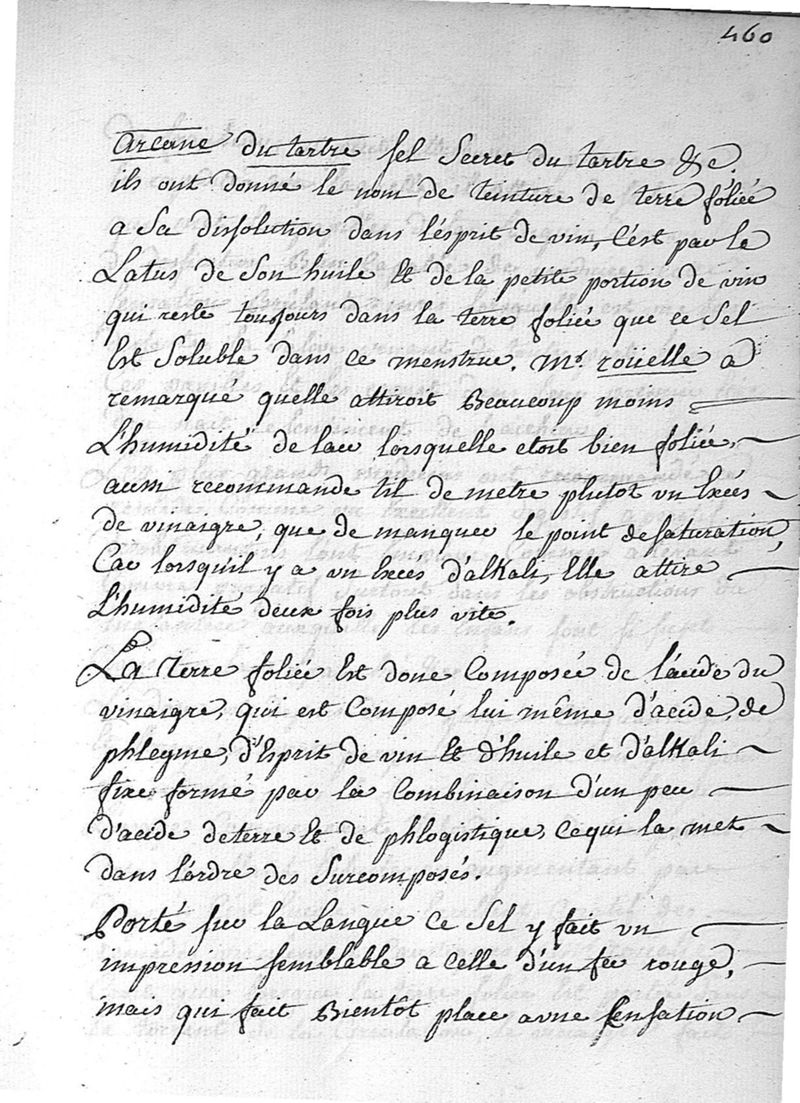 460
Arcane du tartre sel Secret du tartre &c.
ils ont donné le nom de teinture de terre foliée
a Sa dissolution dans l'ésprit de vin, C'ést par le
Latus de Son huile Et de la petite portion de vin
qui reste toujours dans la terre foliée que ce Sel
Est Soluble dans ce menstrue. Mr. roüelle a
remarqué quelle attiroit Beaucoup moins
L'humidité de l'air lorsquelle etoit bien foliée,
aussi recommande til de metre plutot vn Exces
de vinaigre, que de manquer le point de saturation,
Car lorsquil y a vn Exces d'alkali, Elle attire
L'humidité deux fois plus vite.
La terre foliée Est donc Composée de l'acide du
vinaigre, qui est Composé lui même d'acide, de
phlegme, d'Esprit de vin Et d'huile et d'alkali
fixe formé par la Combinaison d'un peu
d'acide de terre Et de phlogistique, ce qui la met
dans l'ordre des Surcomposés.
Porté sur la Langue Ce Sel y fait vn
impression semblable a Celle d'un fer rouge,
mais qui fait Bientôt place a vne sensation